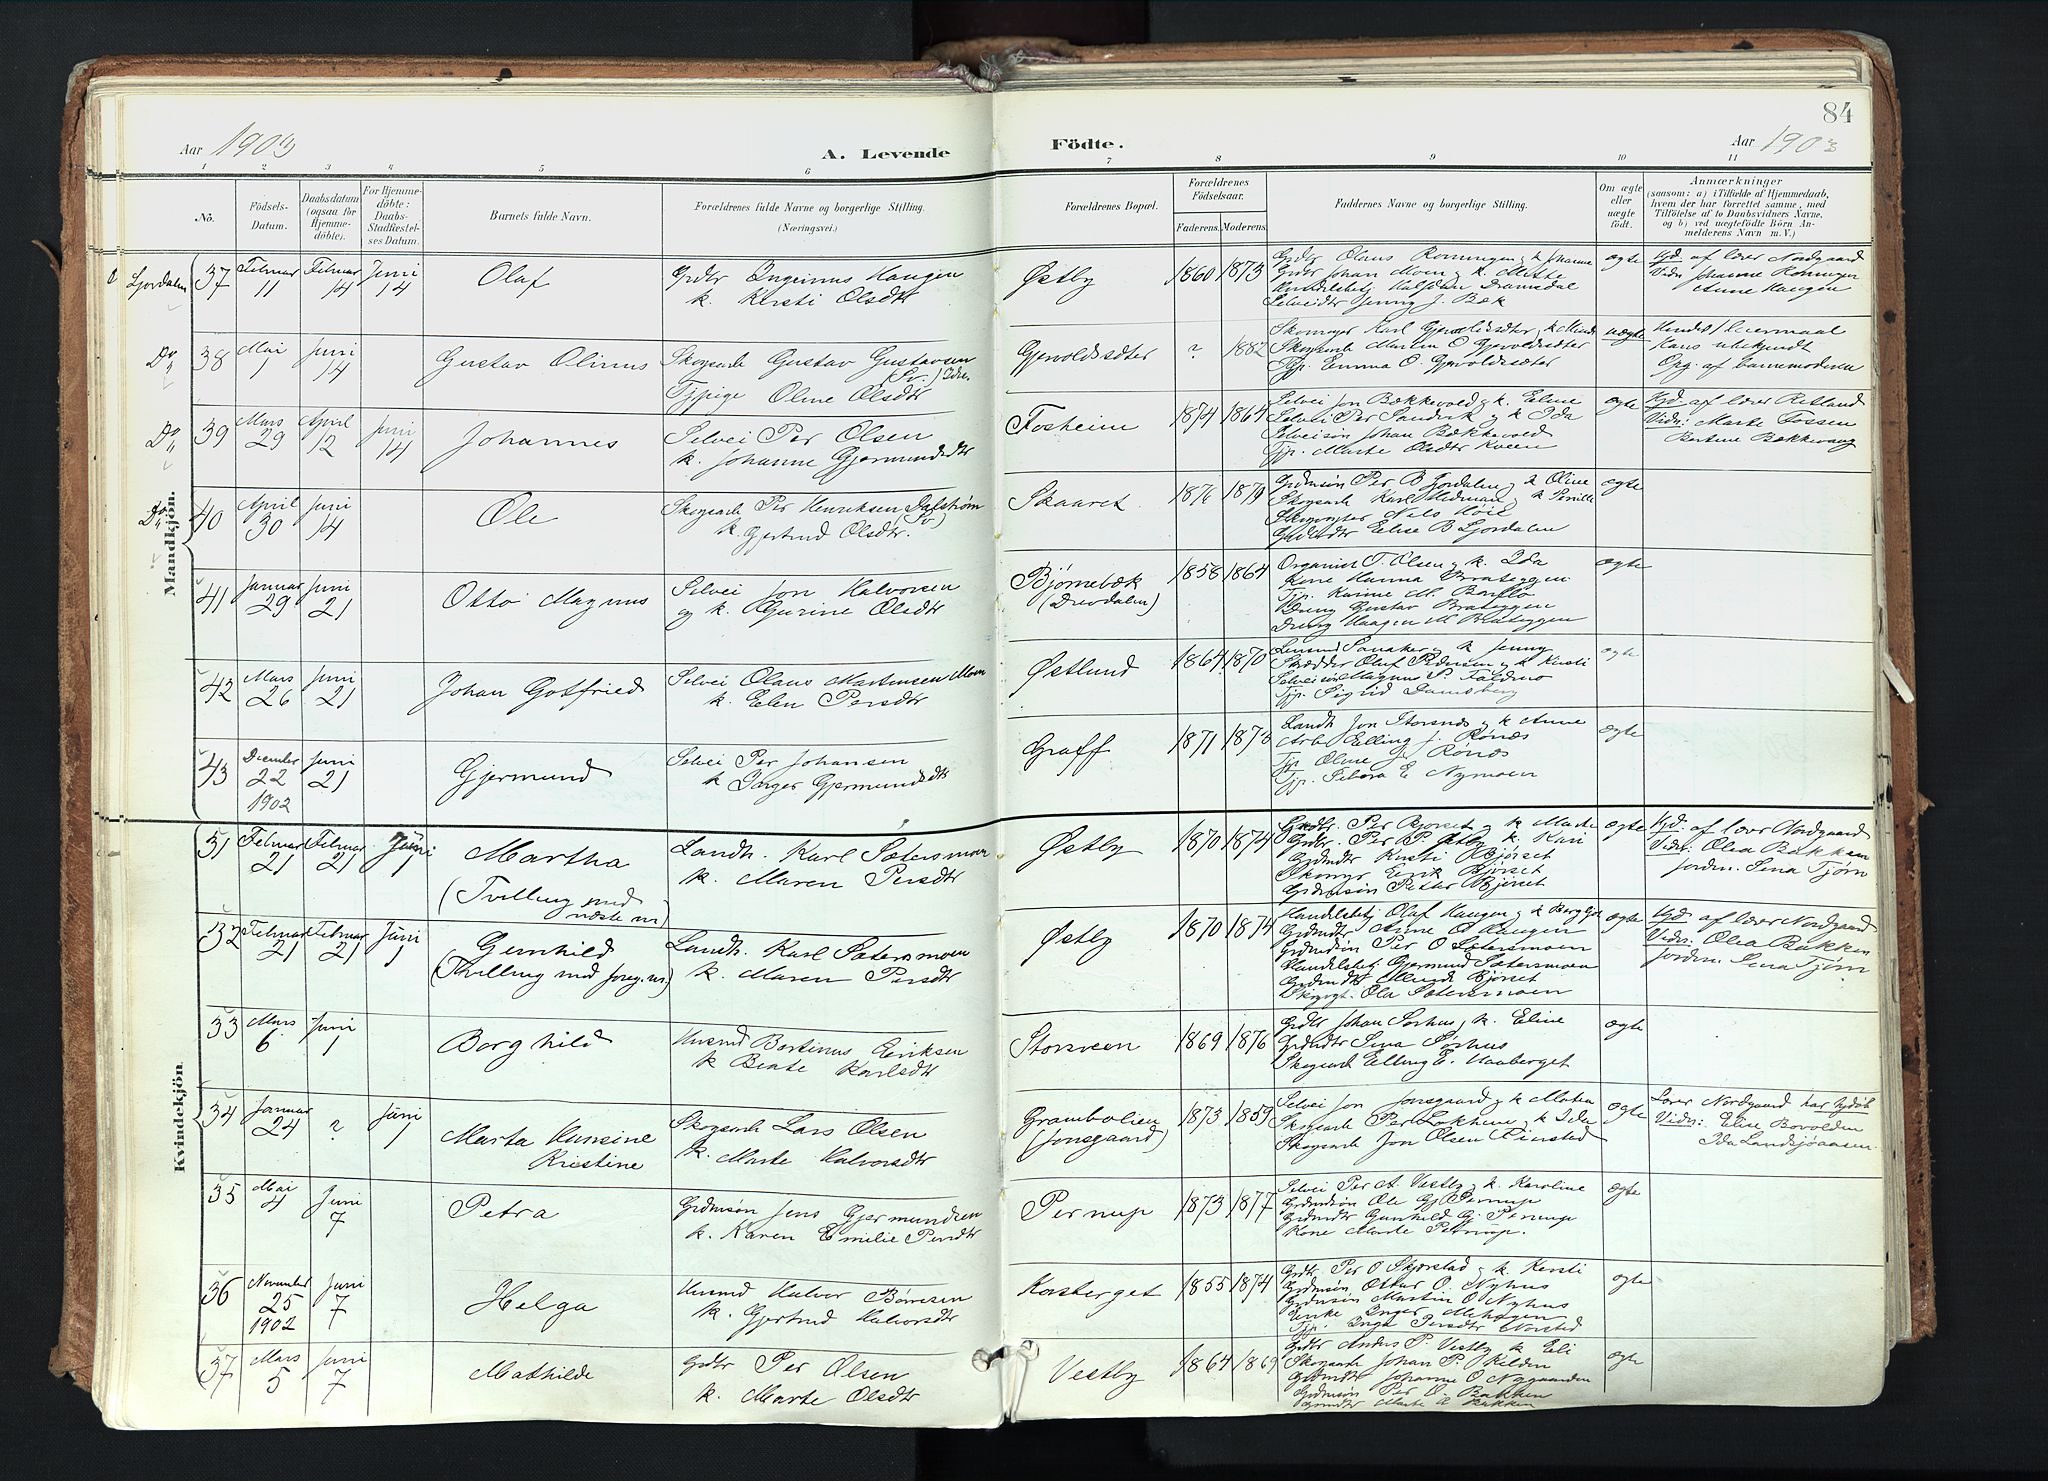 84
Aar 1903
A. Levende
Födte.
Aar 1903
1 2 3 4 5 6 7 8 9 10 11
Nō.
Födsels-Datum.
Daabsdatum (ogsaa for Hjemmedöbte).
For Hjemmedöbte: Daabs-Stadfæstelses Datum.
Barnets fulde Navn.
Forældrenes fulde Navne og borgerlige Stilling.
(Næringsvei.)
Forældrenes Bopæl.
Forældrenes Födselsaar.
Faderens. Moderens.
Faddernes Navne og borgerlige Stilling.
Om ægte eller uægte födt.
Anmærkninger
(saasom: a) i Tilfælde af Hjemmedaab, hvem der har forrettet samme, med Tilföielse af to Daabsvidners Navne, og b) ved uægtefödte Börn Anmelderens Navn m. V.)
Mandkjön.
Ljordalen 37 Februar 11 Februar 14 Juni 14 Olaf
Grdbr Ingeinus Haugen
k. Kirsti Olsdtr
Østby 1860 1873
Grdbr Olaus Ronningen k Johanne
Grdbr Johan Moen og k. Mitte
Handelsbetj Halfdan Dramsdal
Selveidtr Jenny J. Bæk
ægte
Hjd. af lærer Nordgaard
Vidn: Johanne Ronningen
Anne Haugen
Do 38 Mai 1 Juni 14 Gustav Olinus
Skogsarb Gustav Gustavsen
(Sv.) Idre
Tjpige Oline Olsdtr
Gjervoldsæter ? 1882
Skomager Karl Gjervoldsæter
Skogsarb Martin O Gjervoldsæter
Tjp. Emma O. Gjervoldsæter
uægte
Hendes 1 leiermaal
Hans ubekjendt
Opg. af barnemoderen
Do 39 Mars 29 April 12 Juni 14 Johannes
Selvei Per Olsen
k. Johanne Gjermundsdtr
Fosheim 1874 1864
Selvei Jon Bækkevold og k. Eline
Selvei Per Sandvik og k Ida
Selveisøn Johan Bækkevold
Tjp. Marte Olsdtr Kveen
ægte
Hjd. af lærer Retland
Vidn: Marte Fossen
Bertine Bækkevang
Do 40 April 30 Juni 14 Ole
Skogsarb Per Henriksen Dalstrøm
(Sv)
k. Gjertrud Olsdtr.
Skaaret 1876 1879
Grdmsøn Per B Ljordalen og k Oline
Skogsarb Karl Hedman og k Pernille
Skomager Nils Høie
Grdmdtr Elise B Ljordalen
ægte
41 Januar 29 Juni 21 Otto Magnus
Selvei Jon Halvorsen
og k. Gurine Olsdtr
Bjørnebæk
(Drevdalen) 1858 1864
Organist T. Olsen og k. Ida
Kone Hanna Brateggen
Dreng Gustav Brateggen
Dreng Haagen M Brateggen
ægte
42 Mars 26 Juni 21 Johan Gotfried
Selvei Olaus Martinsen Moen
k. Elen Persdtr
Østlund 1864 1870
Lensmd Sanaker og k Jenny
Skrædder Oluf Pedersen og k Kirsti
Selveisøn Magnus P. Faldmo
Tjp. Sigrid Damsberg
ægte
43 December 22 1902 Juni 21 Gjermund
Selvei Per Johansen
k Inger Gjermundsdtr
Graff 1871 1873
Landh Jon Storsnes og k Anne
Arb Elling J. Rønæs
Tjp Oline J. Rønæs
Tjp. Sebora E Nymoen
ægte
Kvindekjön.
31 Februar 21 Februar 21 Juni 1 Martha
(Tvilling med
næste nr)
Landh. Karl Sætersmoen
k. Maren Persdtr
Østby 1870 1874
Grdbr. Per Bjørset og k Marte
Grdbr. Per P. Østby k. Kari
Grdmdtr Kirsti Bjørset
Skomgr Erik Bjørset
Grdmsøn Peter Bjørset
ægte
Hjd. af lærer Nordgaard
Vidn: Olea Bakken
Jordm. Sena Tjørn
32 Februar 21 Februar 21 Juni 1 Gunhild
(Tvilling med foreg. nr.)
Landh. Karl Sætersmoen
k. Maren Persdtr
Østby 1870 1874
Handelsbetj Olaf Haugen og k Bergljot
Grdmdtr Anne O Haugen
Grdmsøn Per O Sætersmoen
Handelsbetj Gjermund Sætersmoen
Skogvgt. Ola Sætersmoen
ægte
Hjd. af lærer Nordgaard
Vidn: Olea Bakken
Jordm. Sena Tjørn
33 Mars 6 Juni 1 Borghild
Husmd Bertinus Eriksen
k Beate Karlsdtr
Storsveen 1869 1876
Grdbr Johan Sorhus, k. Eline
Grdmdtr Sina Sorhus
Skogsarb Elling E. Haaberget
ægte
34 Januar 24 ? Juni 1 Marta Hansine
Kristine
Skogsarb Lars Olsen
k. Marte Halvorsdtr
Grambolien
(Jonsgaard) 1873 1859
Selvei Jon Jonsgaard og k Maten
Skogsarb Per Løkhene og k Ida
Skogsarb Jon Olsen Finstad
ægte
Lærer Nordgaard har hjdøbt
Vidn: Elise Bovolden
Ida Landsjøaasen
35 Mai 4 Juni 7 Petra
Grdmsøn Jens Gjermundsen
k. Karen Emilie Persdtr
Pernup 1873 1877
Selvei Per A Vestby og k. Karoline
Grdmsøn Ole Gj Pernup
Grdmdtr Gunhild Gj. Pernup
Kone Marte Pernup.
ægte
36 November 25 1902 Juni 7 Helga
Husmd Halvor Børresen
k. Gjertrud Halvorsdtr
Kasberget 1855 1874
Grdbr. Per O Skjørstad og k. Kersti
Grdmsøn Ottar O. Nyhus
Grdmsøn Martin O Nyhus
Enke Inger Mehagen
Tjp. Inga Persdtr Norsted
ægte
37 Mars 5 Juni 7 Mathilde
Grdbr Per Olsen
k. Marte Olsdtr
Vestby 1864 1869
Grdbr Anders P. Vestby k Eli
Skogsarb Johan P. Kilden
Grdmdtr Johanne O Nygaarden
Grdmsøn Per O. Bakken
Grdmdtr Marte A Bakken
ægte